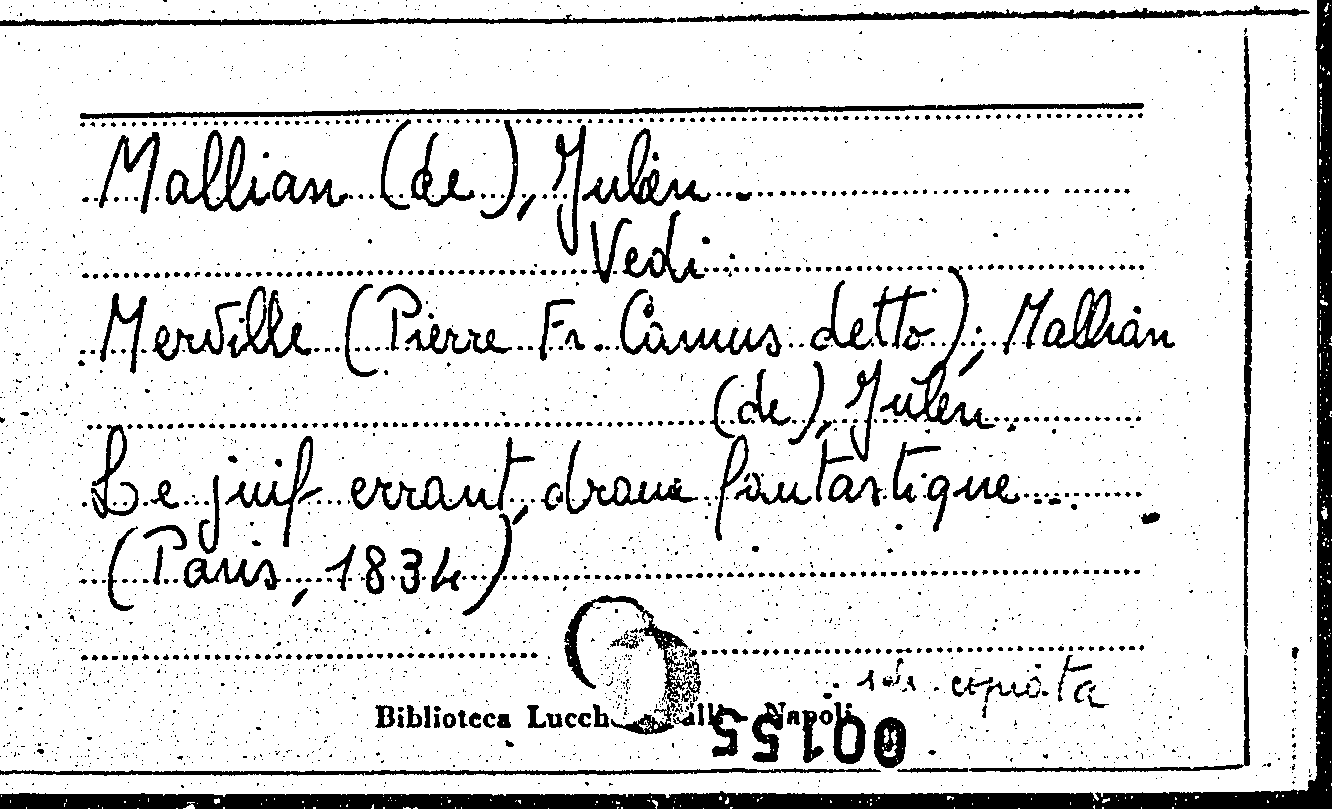 Mallian (de), Julien.
Vedi:
Merville (Pierre Fr. Camus detto); Mallian
(de), Julien.
Le juif errant, drame fantastique...
(Paris, 1834)
copiata
Biblioteca Lucch alli - Napoli
00155